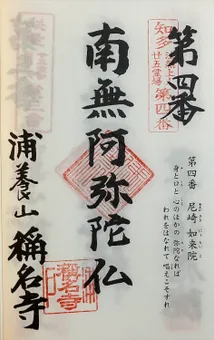 第四番
知多
廿五霊場
第四番
第四番　尼崎 如来院
身と口と 心のほかの 弥陀なれば
われをはなれて 唱えこそすれ
南無阿弥陀仏
浦養山 稱名寺
稱名寺